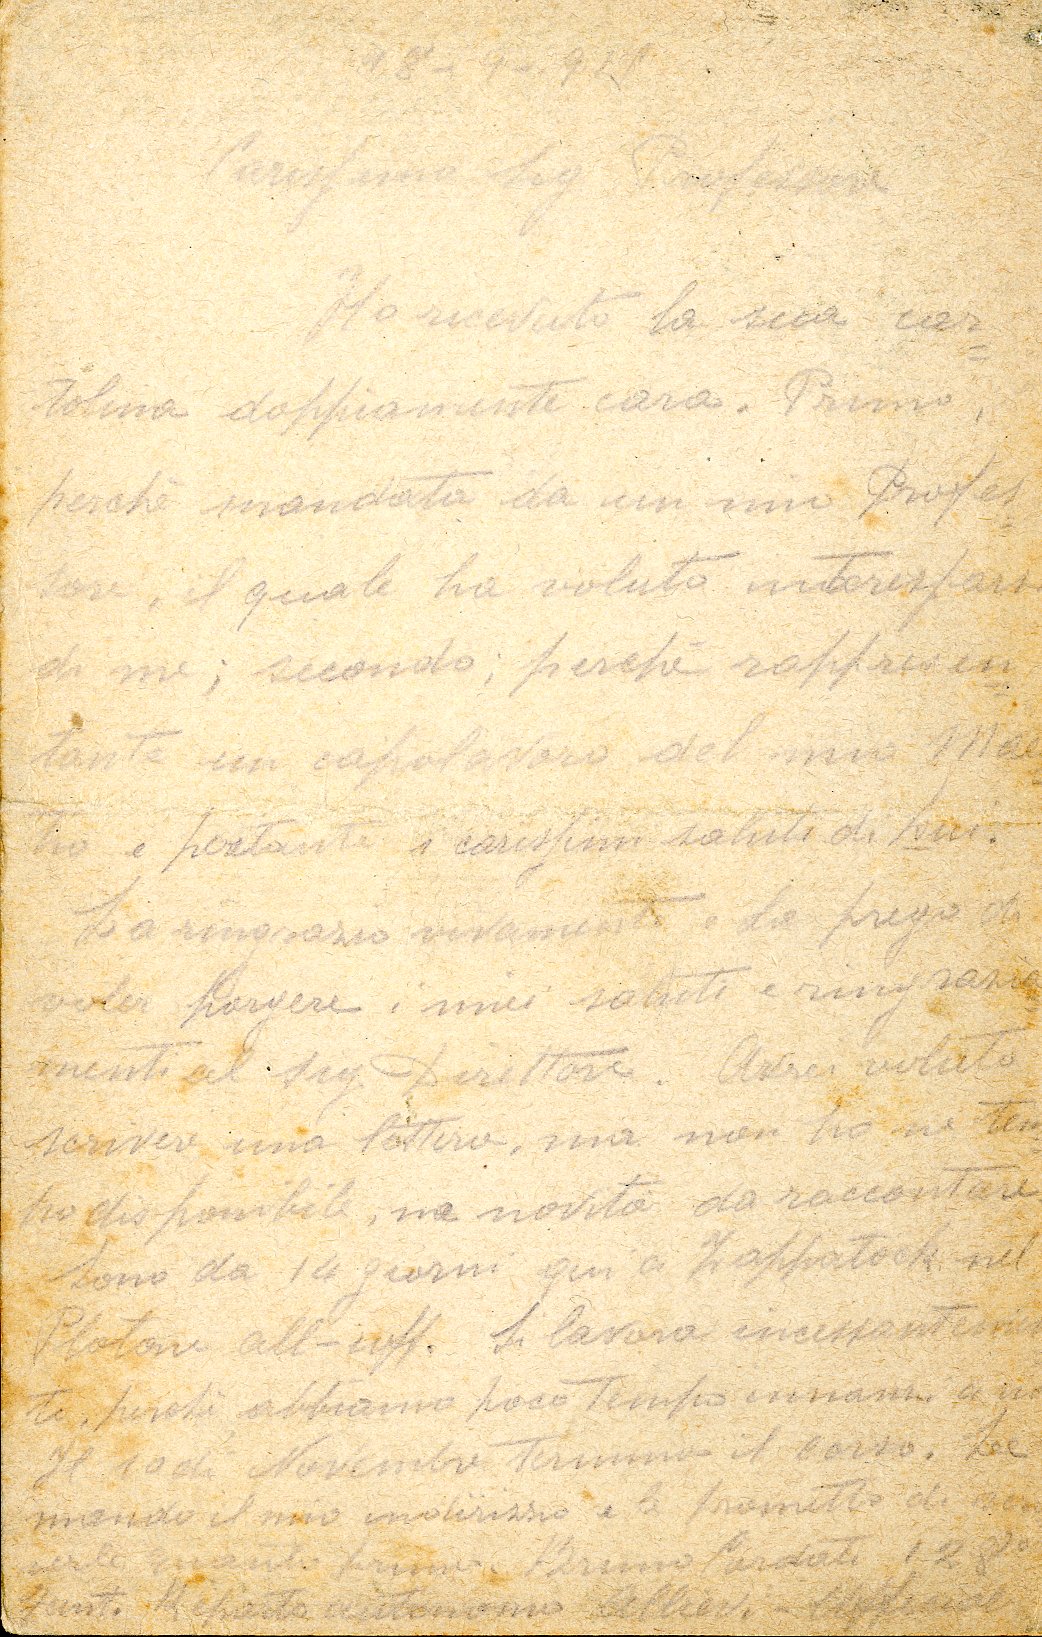 Carissimo Sig Professore
Ho ricevuto la sua car=
tolina doppiamente cara. Primo,
perchè mandata da un mio Profes=
sore, il quale ha voluto interessarsi
di me; secondo, perchè rappresen=
tante un capolavoro del mio Mae=
tro e portante i carissimi saluti di Lui.
La ringrazio vivamente e La prego di
voler porgere i miei saluti e ringrazia=
menti al Sig. Direttore. Avrei voluto
scrivere una lettera, ma non ho ne tem=
po disponibile, ne novità da raccontare
Sono da 14 giorni qui a nel
Plotone all-uff. Si lavora incessantemen
te, perchè abbiamo poco tempo innanzi a noi
Il 10 di Novembre termina il corso. Le
mando il mio indirizzo e le prometto di
quanto prima. Bruno 128°
Fant. Reparto autonomo Allievi-Ufficiali